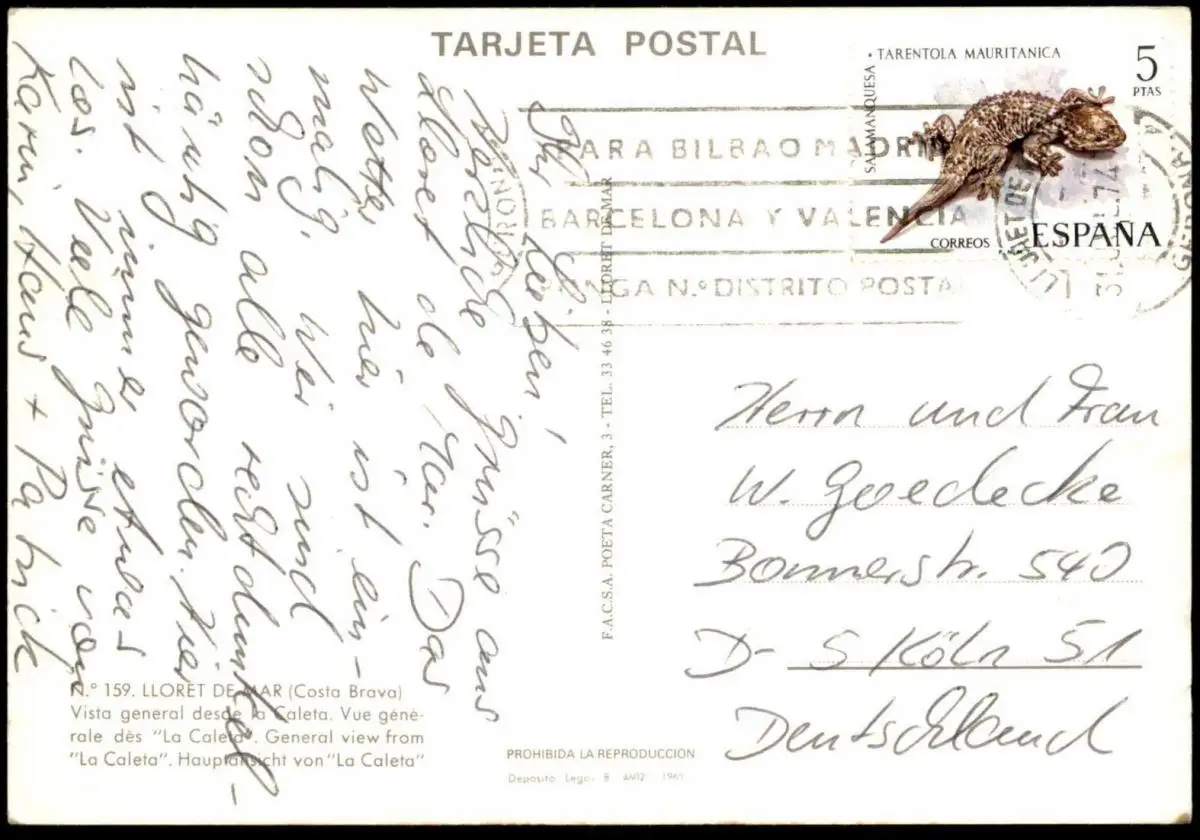 TARJETA POSTAL
TARENTOLA MAURITANICA
SALAMANQUESA
5
PTAS
CORREOS
ESPAÑA
PARA BILBAO MADRID
BARCELONA Y VALENCIA
PONGA N.º DISTRITO POSTAL
GERONA
74
Ihr Lieben!
Herzliche Grüsse aus
Lloret de Mar. Das
Wetter hier ist ein-
malig. Wir sind
schon alle recht dunkel-
häutig geworden. Hier
ist immer etwas
los. Viele Grüsse von
Karin, Hans + Patrick
F.A.C.S.A. POETA CARNER, 3 - TEL. 33 46 38 - LLORET DE MAR
Herrn und Frau
W. Goedecke
Bonnerstr. 540
D- 5 Köln 51
Deutschland
N.º 159. LLORET DE MAR (Costa Brava)
Vista general desde la Caleta. Vue géné-
rale dès "La Caleta". General view from
"La Caleta". Hauptansicht von "La Caleta"
PROHIBIDA LA REPRODUCCION
Deposito Legal B